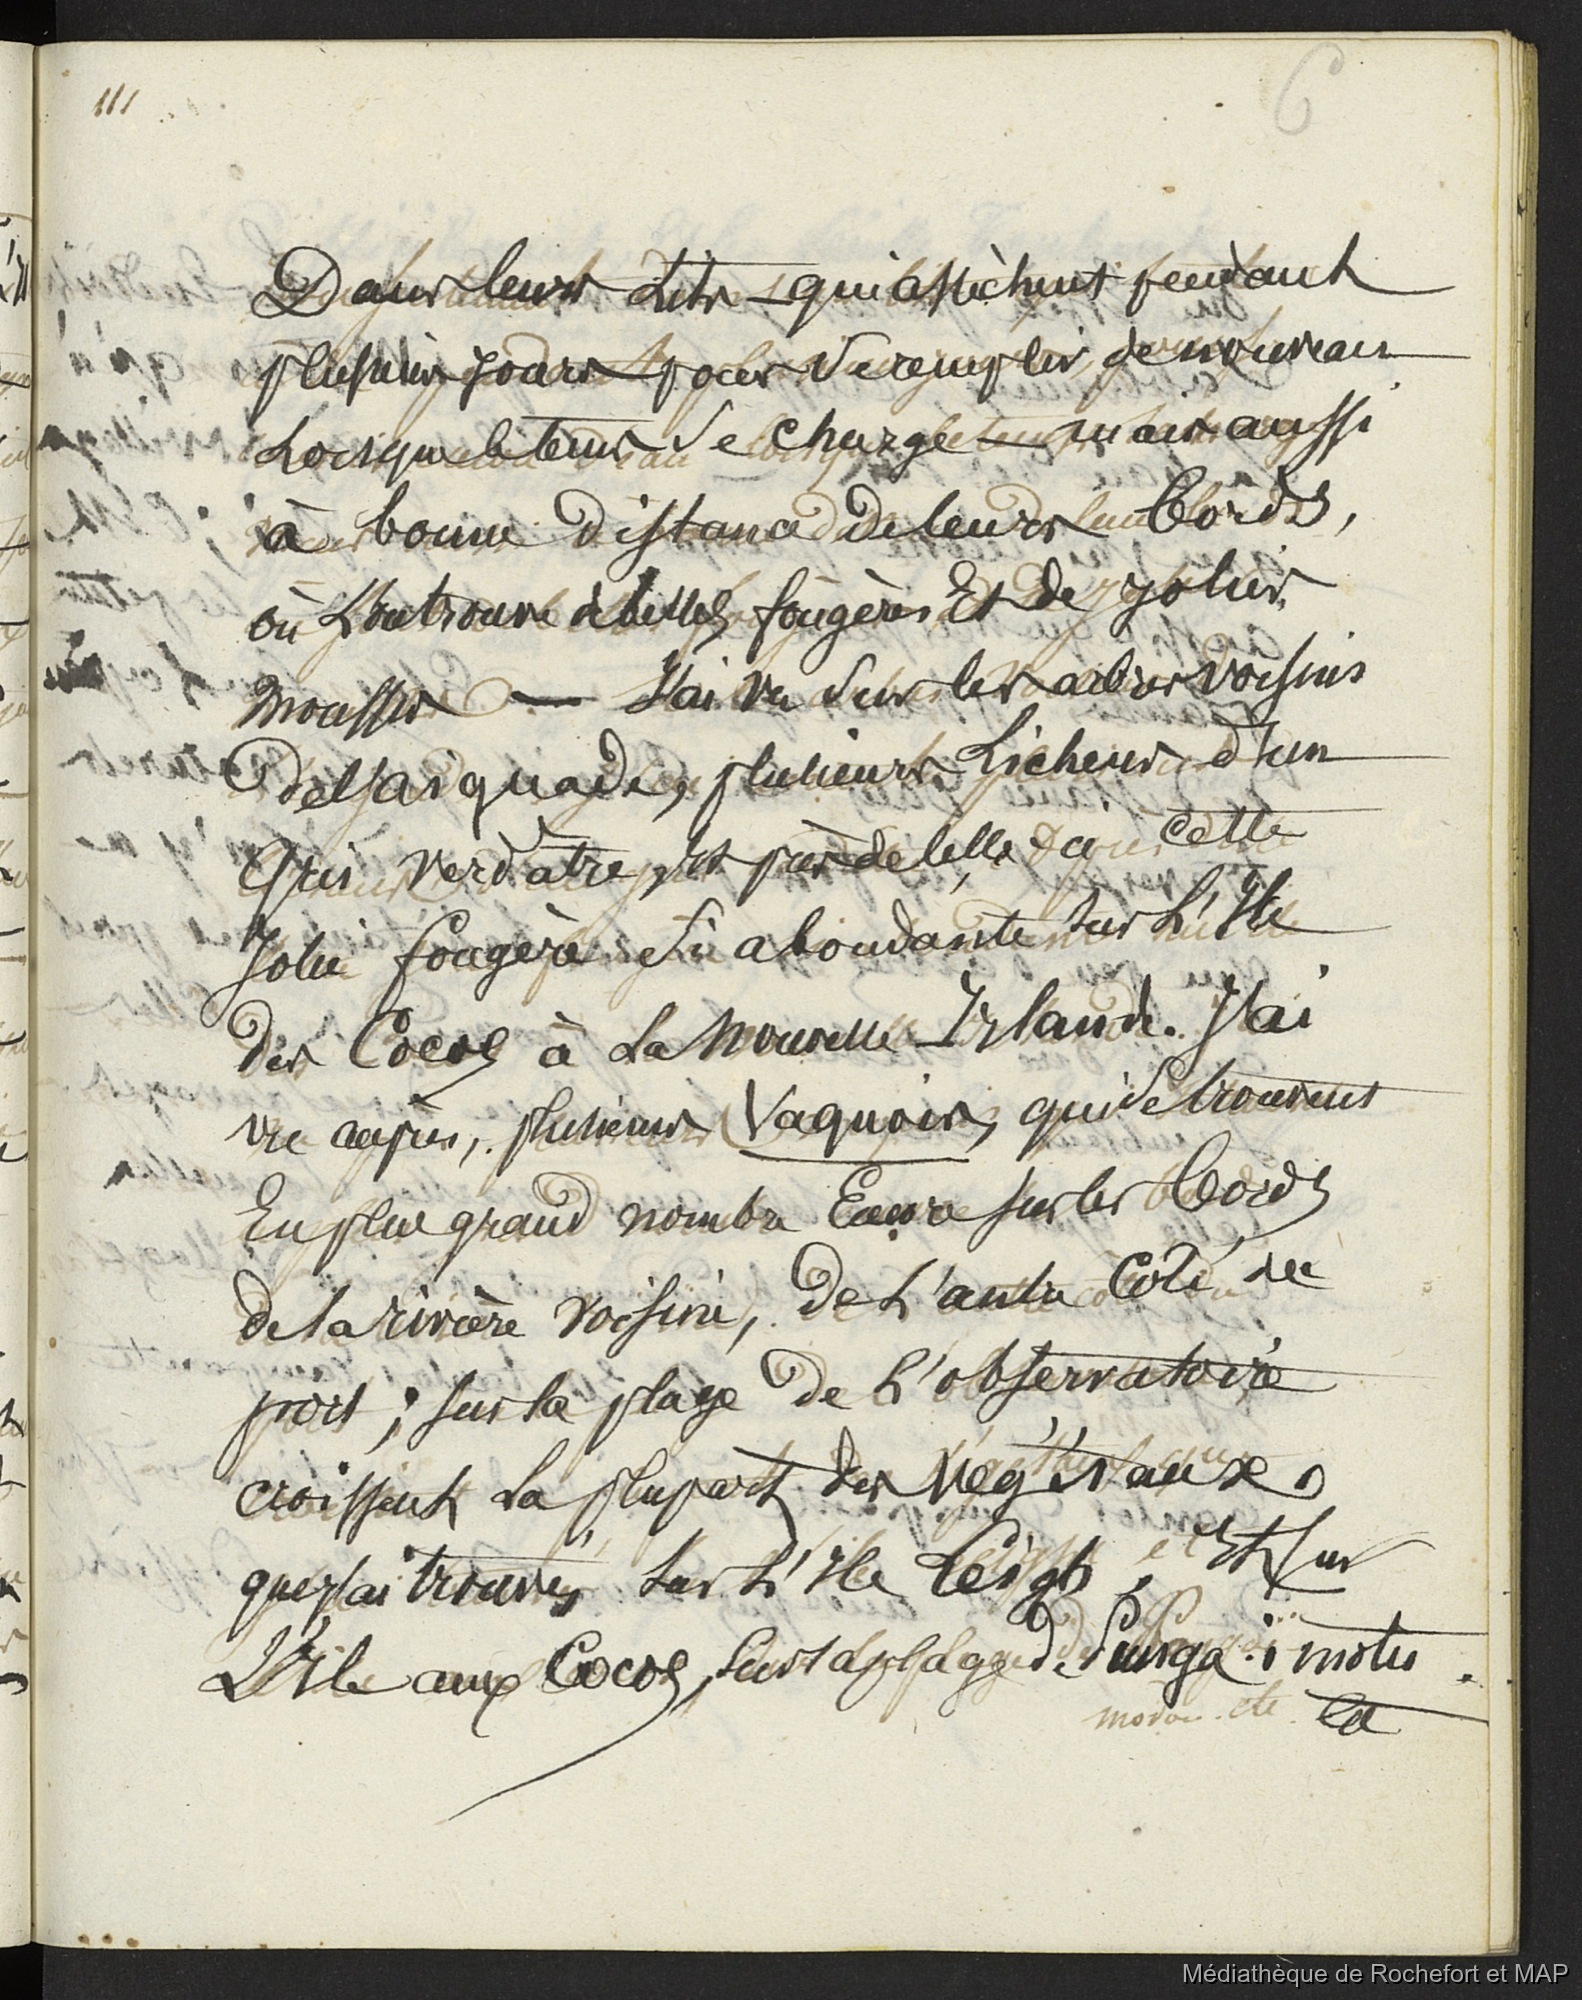 111
6
Dans leurs Lits _ qui assèchent pendant
plusieurs jours pour se remplir, de nouveau
Lorsque le tems se charge — mais aussi
à bonne distance de leurs bords,
où l'on trouve de belles fougères Et de jolies
mousses — J'ai vu sur les arbres voisins
de l'aiguade, plusieurs Lichens d'un
Gris verdâtre, et près de là cette
Jolie fougère si abondante sur L'Ile
des Cocos à La Nouvelle-Irlande. J'ai
vu après, plusieurs Vaquois, qui se trouvent
En plus grand nombre Encore sur les bords
de la rivière voisine, de L'autre Coté du
port ; sur la plage de L'observatoire
croissent La plupart des végétaux,
que j'ai trouvés sur L'Ile Leigh, Et sur
L'Ile aux Cocos, sur la plage de
la
Médiathèque de Rochefort et MAP